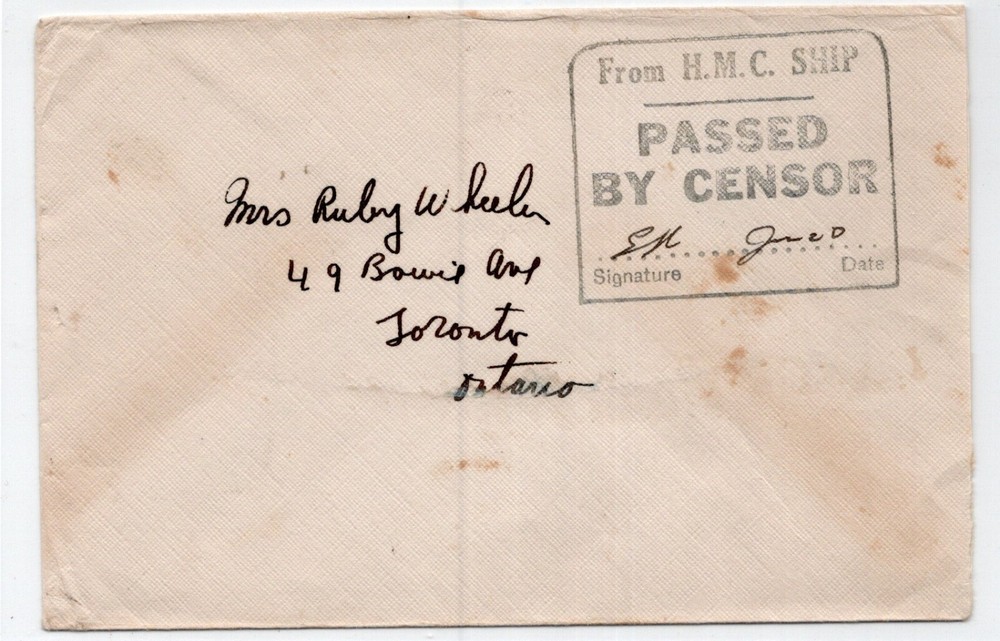 From H.M.C. SHIP
PASSED
BY CENSOR
Jan 20
Signature Date
Mrs Ruby Wheeler
49 Bowie Ave
Toronto
Ontario